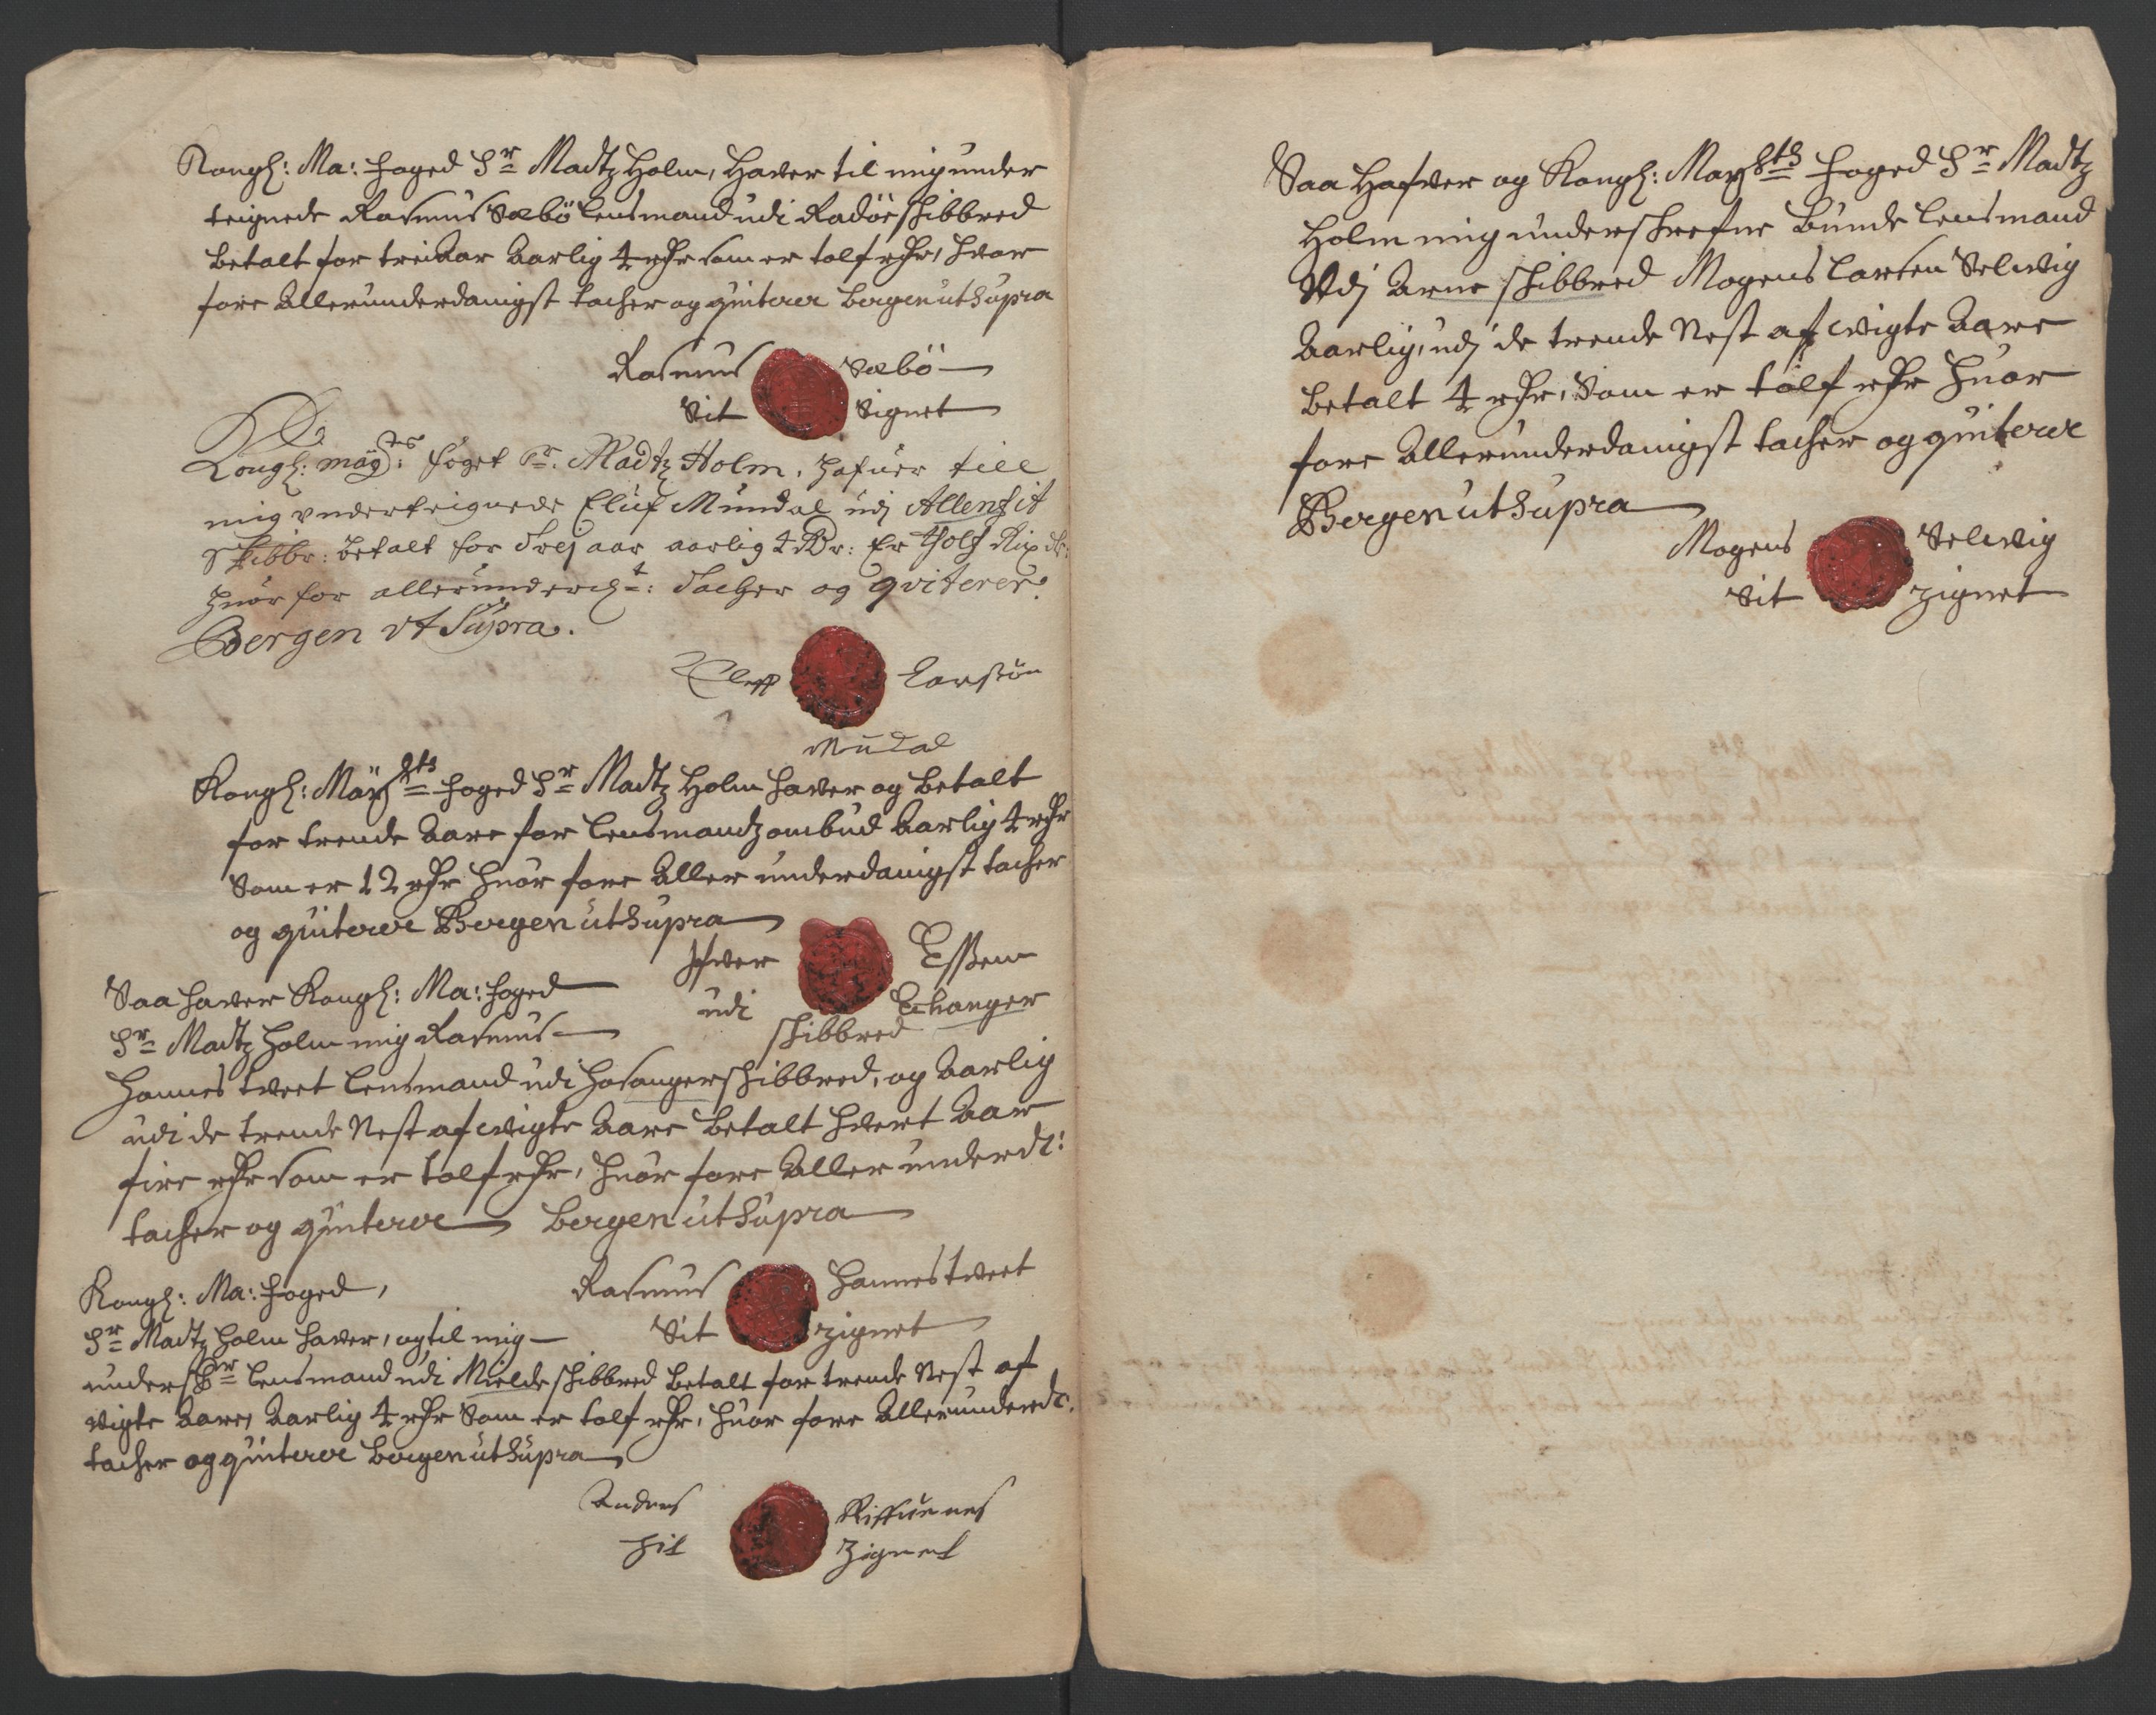 Kongl: Ma: foged Sr Madtz Holm, Haver til mig under
teignede Rasmus Sæbö lensmand udi Radöe skibbred
betalt for trei Aar Aarlig 4 rdr som er tolf rdr, hvor
fore Allerunderdanigst tacher og quiterer Bergen ut Supra
Rasmus Sæbö
Sit Signet
Kongl: mäytes: foget Sr. Madtz Holm, hafuer till
mig vnderteignede Eluf Mundal udj Allenfit
Skibbr: betalt for Trej aar aarlig 4 Rdr: Er Tholf Rix dr:
huor for allerunderdgt: Tacher og qviterer.
Bergen vt Supra.
Eleff Larsön
Mudal
Kongl: Mäyts foged Sr Madtz Holm haver og betalt
for trende Aare for lensmandz ombud Aarlig 4 rdr
Som er 12 rdr huor fore Aller underdanigst tacher
og quiterer Bergen ut Supra
Ifver Essem
udi Echanger
skibbred
Saa haver Kongl: Ma: foged
Sr Madtz Holm mig Rasmus
Hannestveet lensmand udi Hosanger skibbred, og Aarlig
udi de trende Nest afvigte Aare betalt hvert Aar
fire rdr som er tolf rdr, huor fore Aller underd:
tacher og quiterer Bergen ut Supra
Rasmus Hannestveet
Sit zignet
Kongl: Ma: foged,
Sr Madtz Holm haver, og til mig
undersk:r lensmand udi Mielde skibbred betalt for trende Nest af
vigte Aare, Aarlig 4 rdr Som er tolf rdr, huor fore Allerunderd:
tacher og quiterer Bergen ut Supra
Anders Risfuenes
Sit Zignet
Saa Hafver og Kongl: Mayts foged Sr Madtz
Holm mig underskrefne Bunde lensmand
Udj Arne skibbred Mogens Larsen Selvig
Aarlig, udj de trende Nest afvigte Aare
betalt 4 rdr, Som er tolf rdr huor
fore Allerunderdanigst tacher og quiterer
Bergen ut Supra
Mogens Selvig
Sit zignet